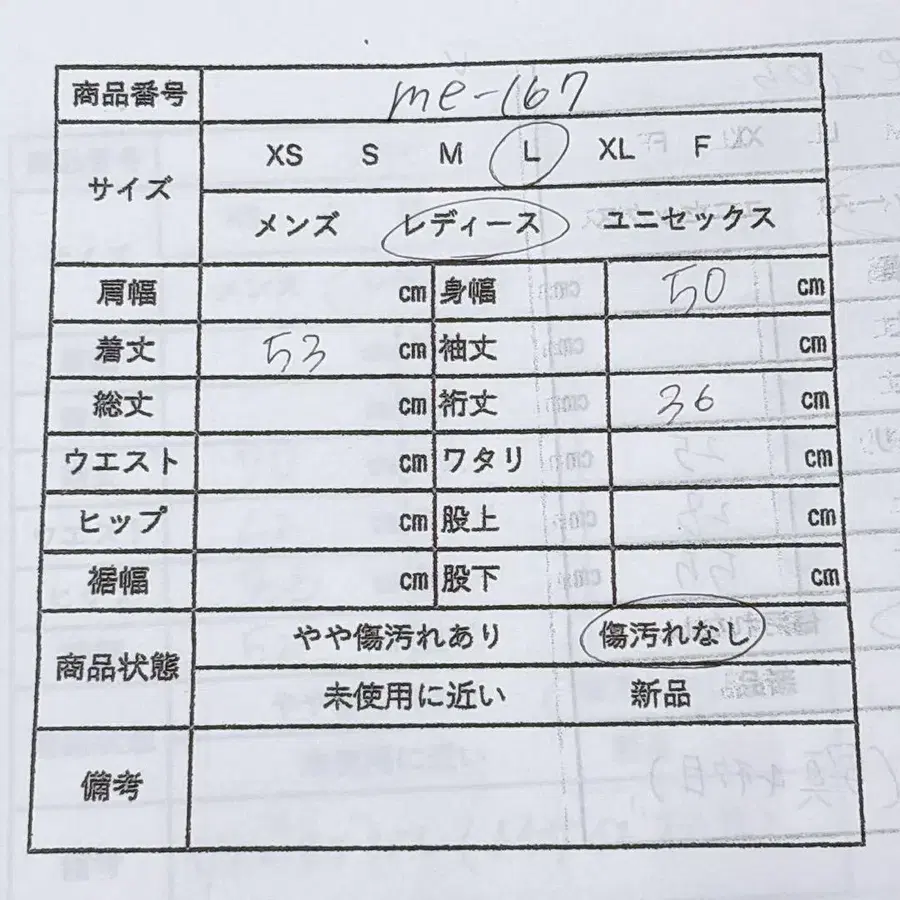 商品番号 me-167
サイズ XS S M L XL F
メンズ レディース ユニセックス
肩幅 cm 身幅 50 cm
着丈 53 cm 袖丈 cm
総丈 cm 裄丈 36 cm
ウエスト cm ワタリ cm
ヒップ cm 股上 cm
裾幅 cm 股下 cm
商品状態 やや傷汚れあり 傷汚れなし
未使用に近い 新品
備考